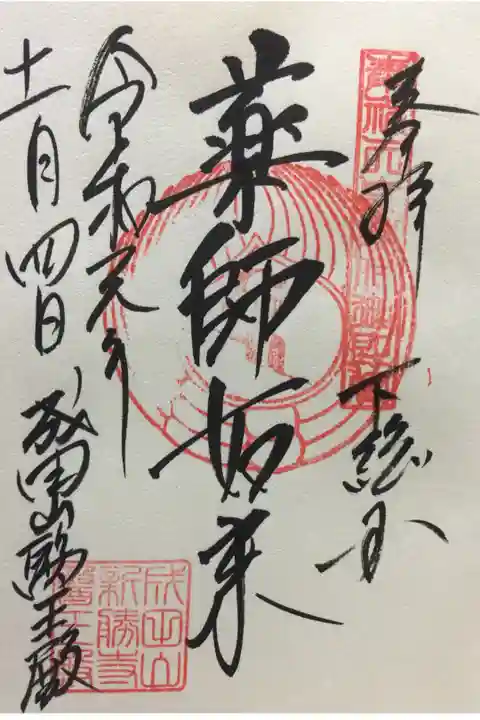 奉拝 下総国
薬師如来
令和元年
十一月四日 成田山醫王殿
成田山
新勝寺
醫王殿